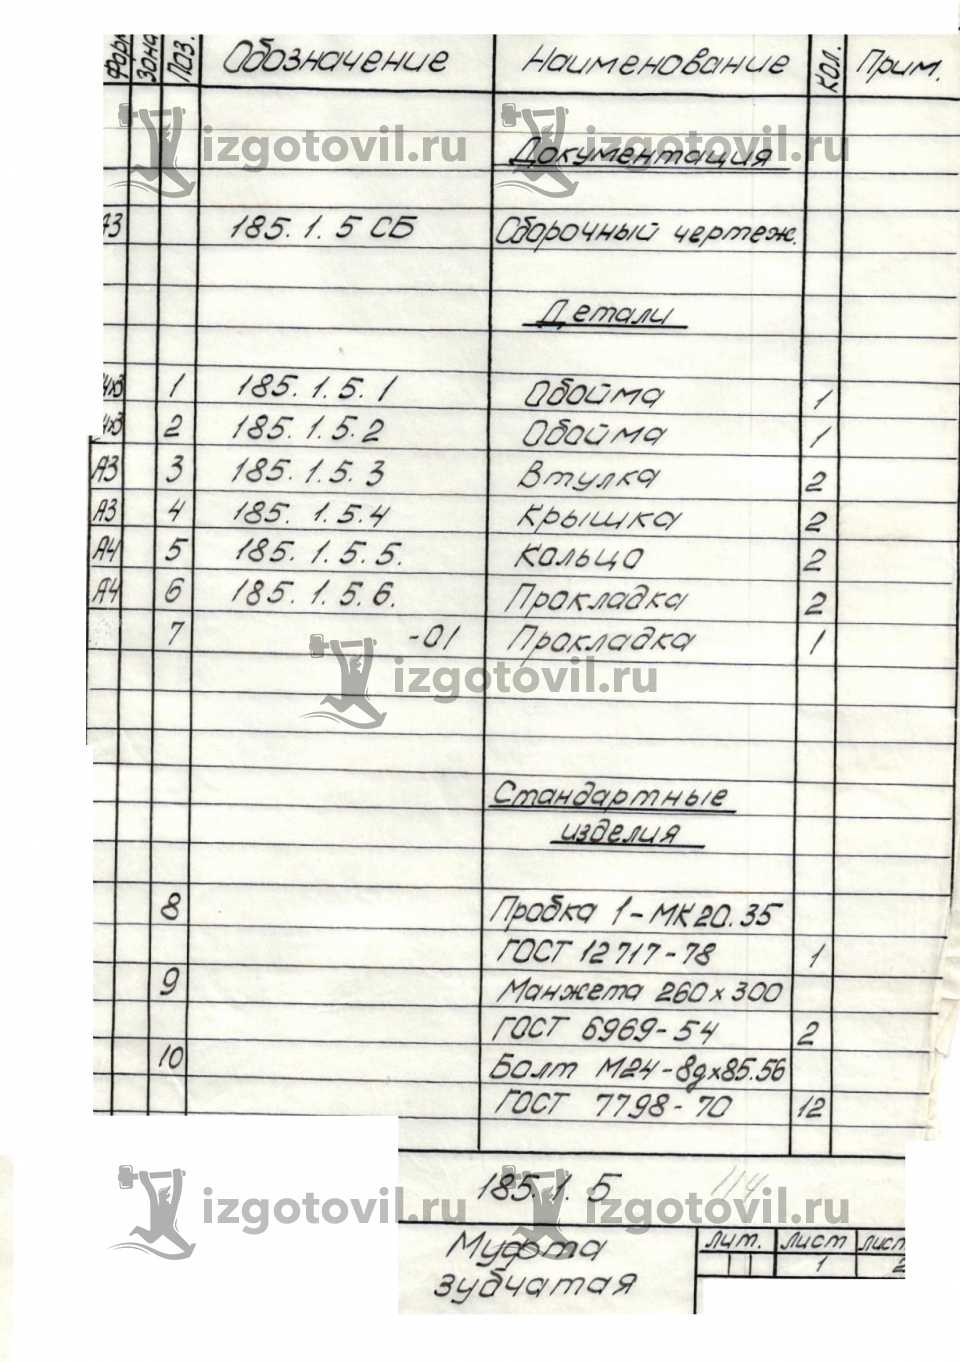 Форм Зона Поз. Обозначение Наименование Кол. Прим.
izgotovil.ru izgotovil.ru
Документация
А3 185. 1. 5 СБ Сборочный чертеж.
Детали
4х3 1 185. 1. 5. 1 Обойма 1
4х3 2 185. 1. 5. 2 Обойма 1
А3 3 185. 1. 5. 3 Втулка 2
А3 4 185. 1. 5. 4 Крышка 2
А4 5 185. 1. 5. 5. Кольцо 2
А4 6 185. 1. 5. 6. Прокладка 2
7 -01 Прокладка 1
izgotovil.ru
Стандартные
изделия
8 Пробка 1-МК20.35
ГОСТ 12717-78 1
9 Манжета 260х300
ГОСТ 6969-54 2
10 Болт М24-8gх85.56
ГОСТ 7798-70 12
185. 1. 5 114
izgotovil.ru izgotovil.ru
Муфта
зубчатая
Лит. Лист Лист
1 2